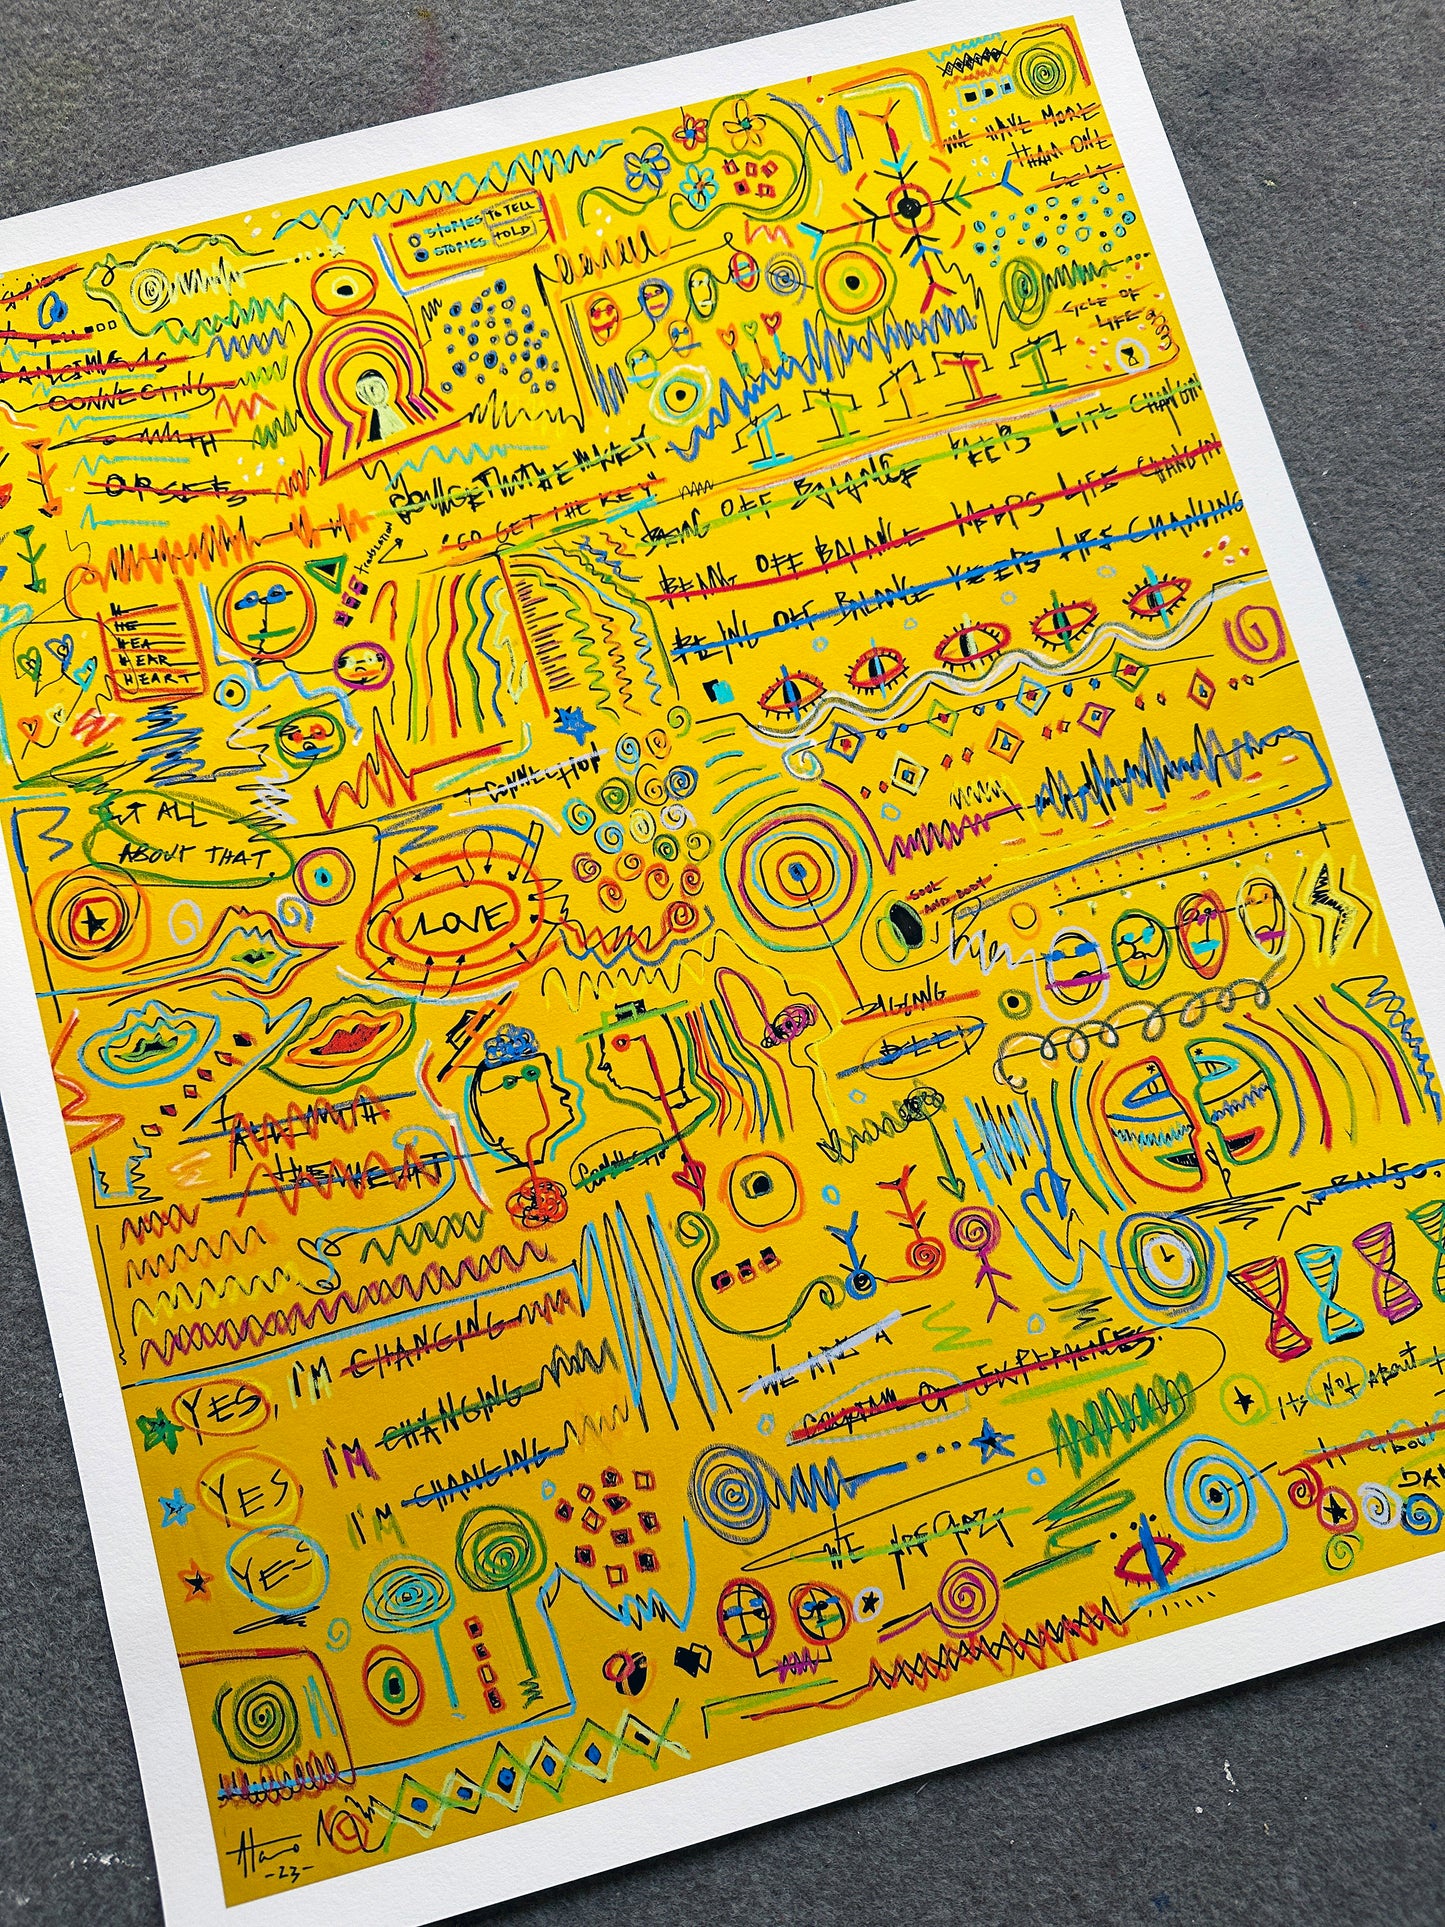 WE HAVE MORE
THAN ONE
SELF.
STORIES TO TELL
STORIES TOLD
CYCLE OF
LIFE
CONNECTING
"GO GET THE KEY"
translation
BEING OFF BALANCE KEEPS LIFE CHANGIN
BEING OFF BALANCE KEEPS LIFE CHANGIN
BEING OFF BALANCE KEEPS LIFE CHANGING
H
HE
HEA
HEAR
HEART
CONNECTION
ALL
ABOUT THAT.
LOVE
SOUL
AND BODY
DIGGING
DEEP
THE HEART
CONNECTION
BANJO.
YES, I'M CHANGING
YES, I'M CHANGING
YES, I'M CHANGING
WE ARE A
OF EXPERIENCES.
ITS NOT ABOUT
ABOUT
WE ARE CRAZY
-23-